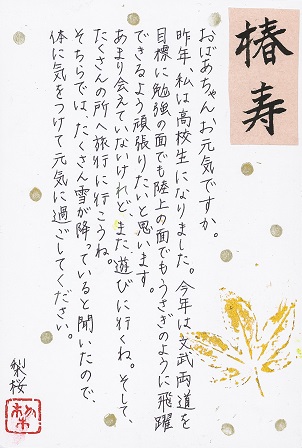 椿寿
おばあちゃん、お元気ですか。
昨年、私は高校生になりました。今年は文武両道を
目標に勉強の面でも陸上の面でもうさぎのように飛躍
できるよう頑張りたいと思います。
あまり会えていないけれど、また遊びに行くね。そして、
たくさんの所へ旅行に行こうね。
そちらでは、たくさん雪が降っていると聞いたので、
体に気をつけて元気に過ごしてください。
梨桜